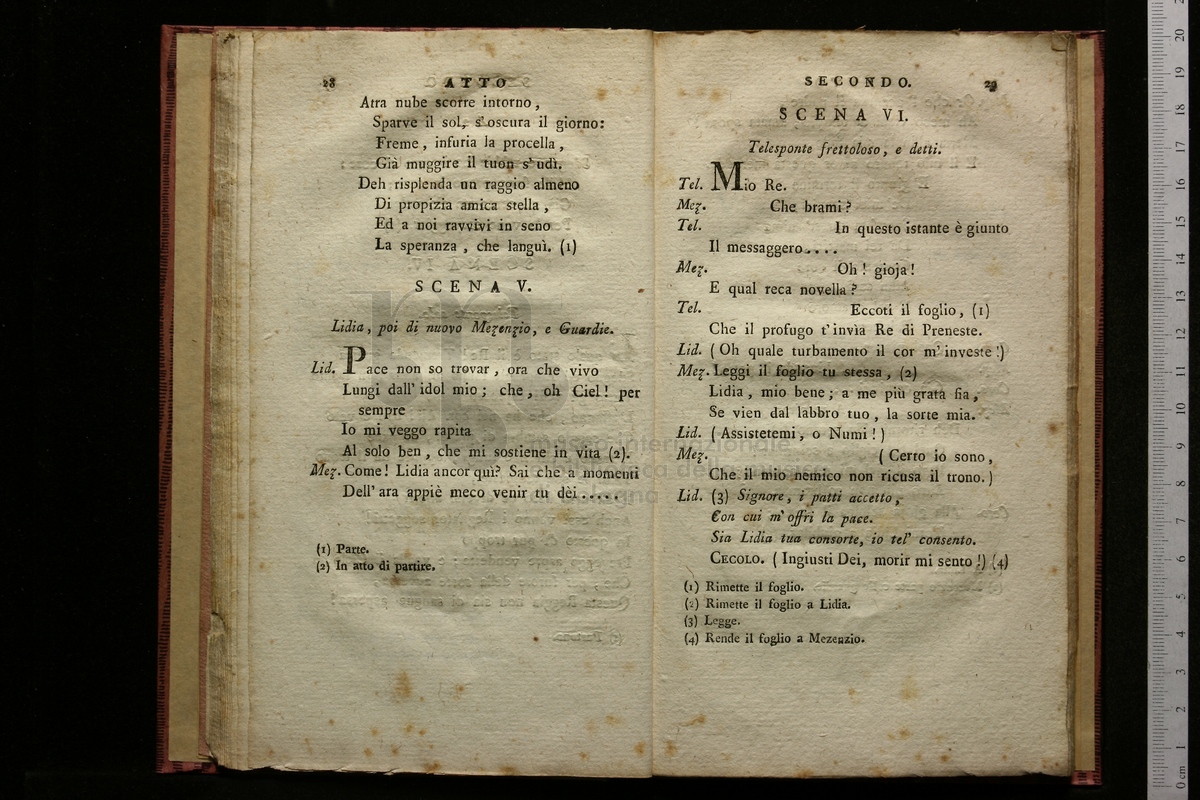 28 ATTO
Atra nube scorre intorno,
Sparve il sol, s'oscura il giorno:
Freme, infuria la procella,
Già muggire il tuon s'udì.
Deh risplenda un raggio almeno
Di propizia amica stella,
Ed a noi ravvivi in seno
La speranza, che languì. (1)
SCENA V.
Lidia, poi di nuovo Mezenzio, e Guardie.
Lid. Pace non so trovar, ora che vivo
Lungi dall' idol mio; che, oh Ciel! per
sempre
Io mi veggo rapita
Al solo ben, che mi sostiene in vita (2).
Mez. Come! Lidia ancor quì? Sai che a momenti
Dell' ara appiè meco venir tu dèi.....
(1) Parte.
(2) In atto di partire.
SECONDO. 29
SCENA VI.
Telesponte frettoloso, e detti.
Tel. Mio Re.
Mez. Che brami?
Tel. In questo istante è giunto
Il messaggero....
Mez. Oh! gioja!
E qual reca novella?
Tel. Eccoti il foglio, (1)
Che il profugo t'invìa Re di Preneste.
Lid. (Oh quale turbamento il cor m'investe!)
Mez. Leggi il foglio tu stessa, (2)
Lidia, mio bene; a me più grata fia,
Se vien dal labbro tuo, la sorte mia.
Lid. (Assistetemi, o Numi!)
Mez. (Certo io sono,
Che il mio nemico non ricusa il trono.)
Lid. (3) Signore, i patti accetto,
Con cui m'offri la pace.
Sia Lidia tua consorte, io tel' consento.
CECOLO. (Ingiusti Dei, morir mi sento!) (4)
(1) Rimette il foglio.
(2) Rimette il foglio a Lidia.
(3) Legge.
(4) Rende il foglio a Mezenzio.
museo internazionale